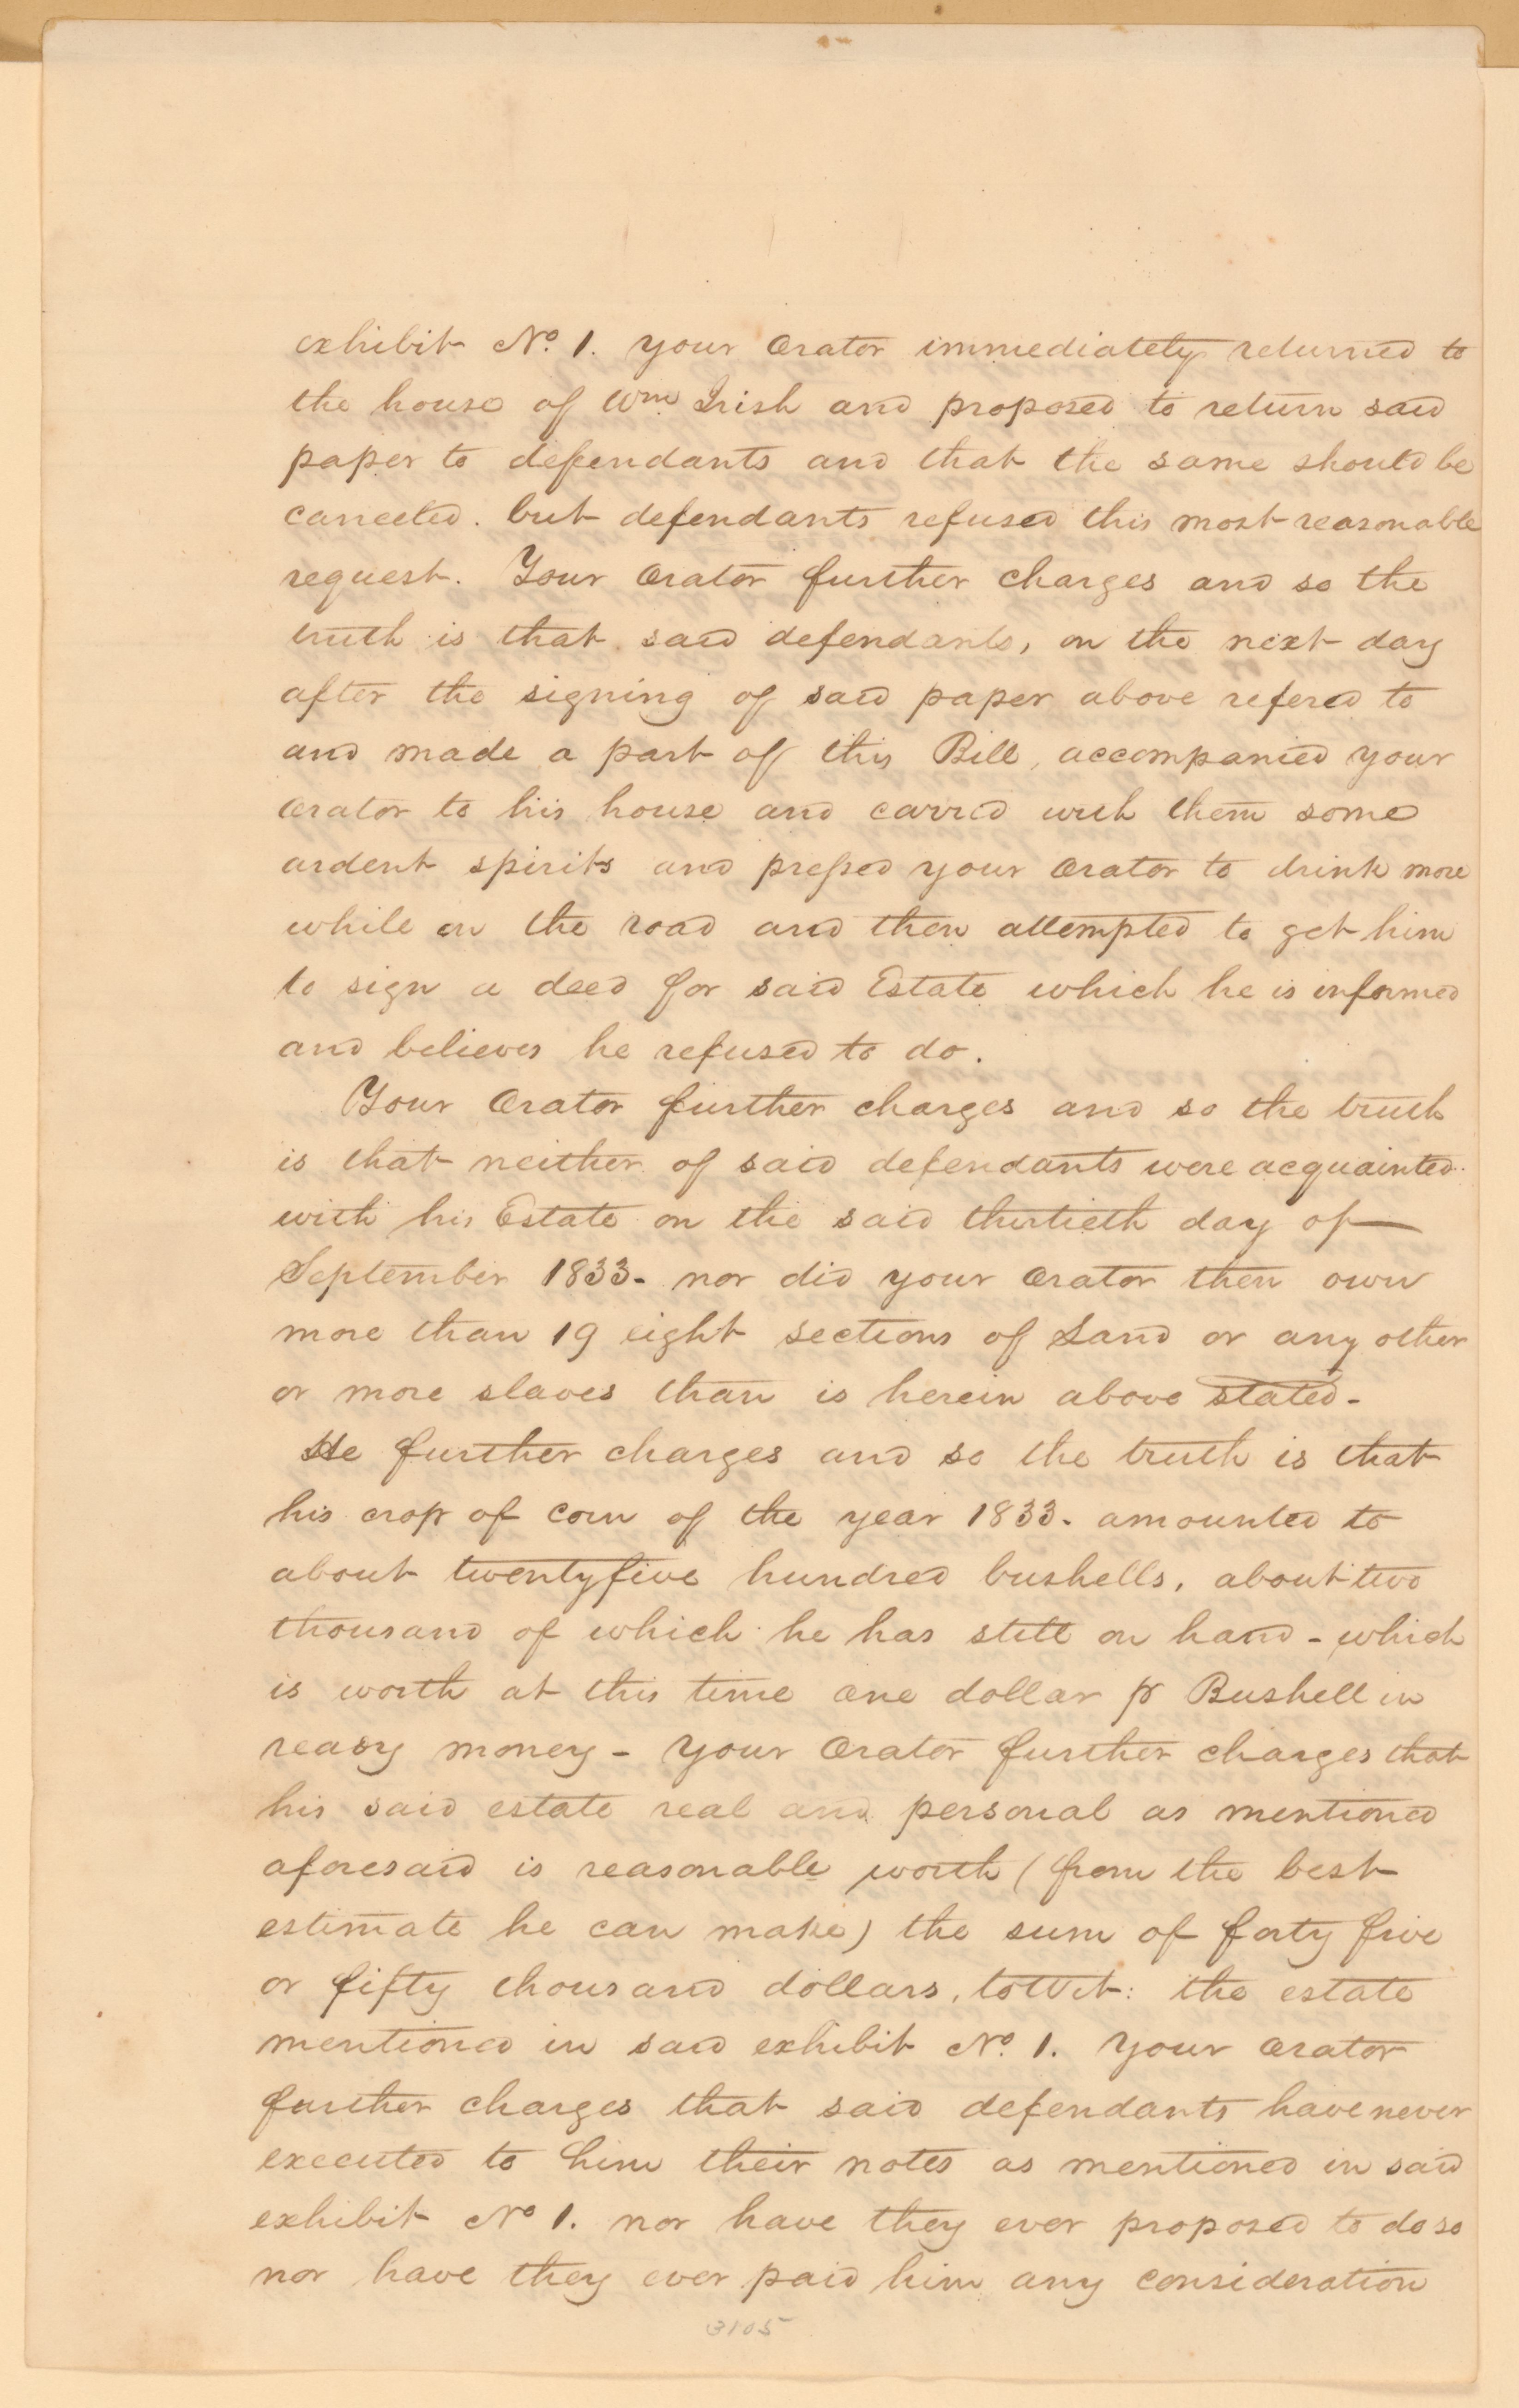 exhibit No. 1. your Orator immediately returned to
the house of Wm Irish and proposed to return said
paper to defendants and that the same should be
canceled. but defendants refused this most reasonable
request. Your Orator further charges and so the
truth is that said defendants, on the next day
after the signing of said paper above refered to
and made a part of this Bill, accompanied your
Orator to his house and carried with them some
ardent spirits and pressed your Orator to drink more
while on the road and then attempted to get him
to sign a deed for said Estate which he is informed
and believes he refused to do.
Your Orator further charges and so the truth
is that neither of said defendants were acquainted
with his Estate on the said thirtieth day of
September 1833. nor did your Orator then own
more than 19 eight sections of Land or any other
or more slaves than is herein above stated-
He further charges and so the truth is that
his crop of corn of the year 1833. amounted to
about twentyfive hundred bushells, about two
thousand of which he has still on hand - which
is worth at this time one dollar pr Bushell in
ready money - Your Orator further charges that
his said estate real and personal as mentioned
aforesaid is reasonable worth (from the best
estimate he can make) the sum of forty five
or fifty thousand dollars, toWit: the estate
mentioned in said exhibit No. 1. Your Orator
further charges that said defendants have never
executed to him their notes as mentioned in said
exhibit No 1. nor have they ever proposed to do so
nor have they ever paid him any consideration
3105